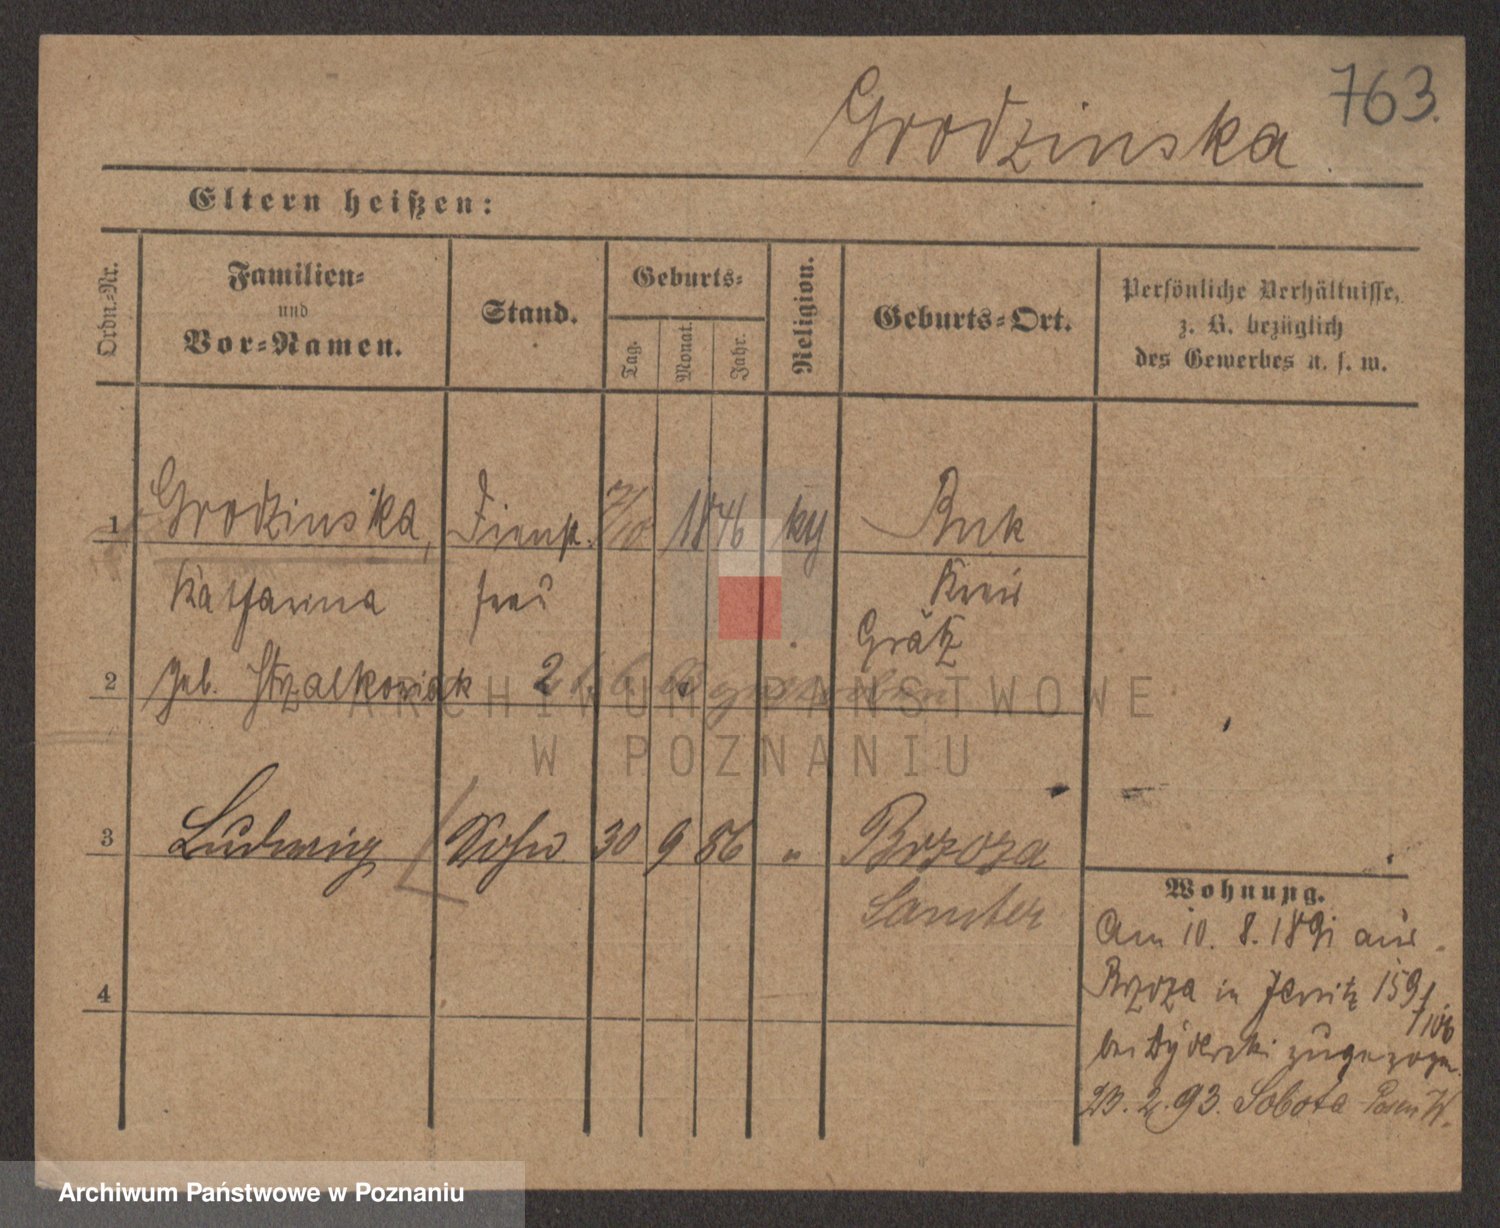 763.
Grodzinska
Eltern heißen:
Ordn.-Nr.
Familien-
und
Vor-Namen.
Stand.
Geburts-
Tag.
Monat.
Jahr.
Religion.
Geburts-Ort.
Persönliche Verhältnisse,
z. B. bezüglich
des Gewerbes u. s. w.
1 Grodzinska, Dienst. 7/10 1846 Buk
Katharina frau Kreis
Grätz
2 geb. Strzalkowiak
ARCHIWUM PAŃSTWOWE
W POZNANIU
3 Ludwig Sohn 30 9 86 " Brzoza
Samter
4
Wohnung.
Am 10. 8. 1891 aus
Brzoza in Jersitz 159/106
bei zugezogen.
23. 2. 93. Sobota Posen W.
Archiwum Państwowe w Poznaniu